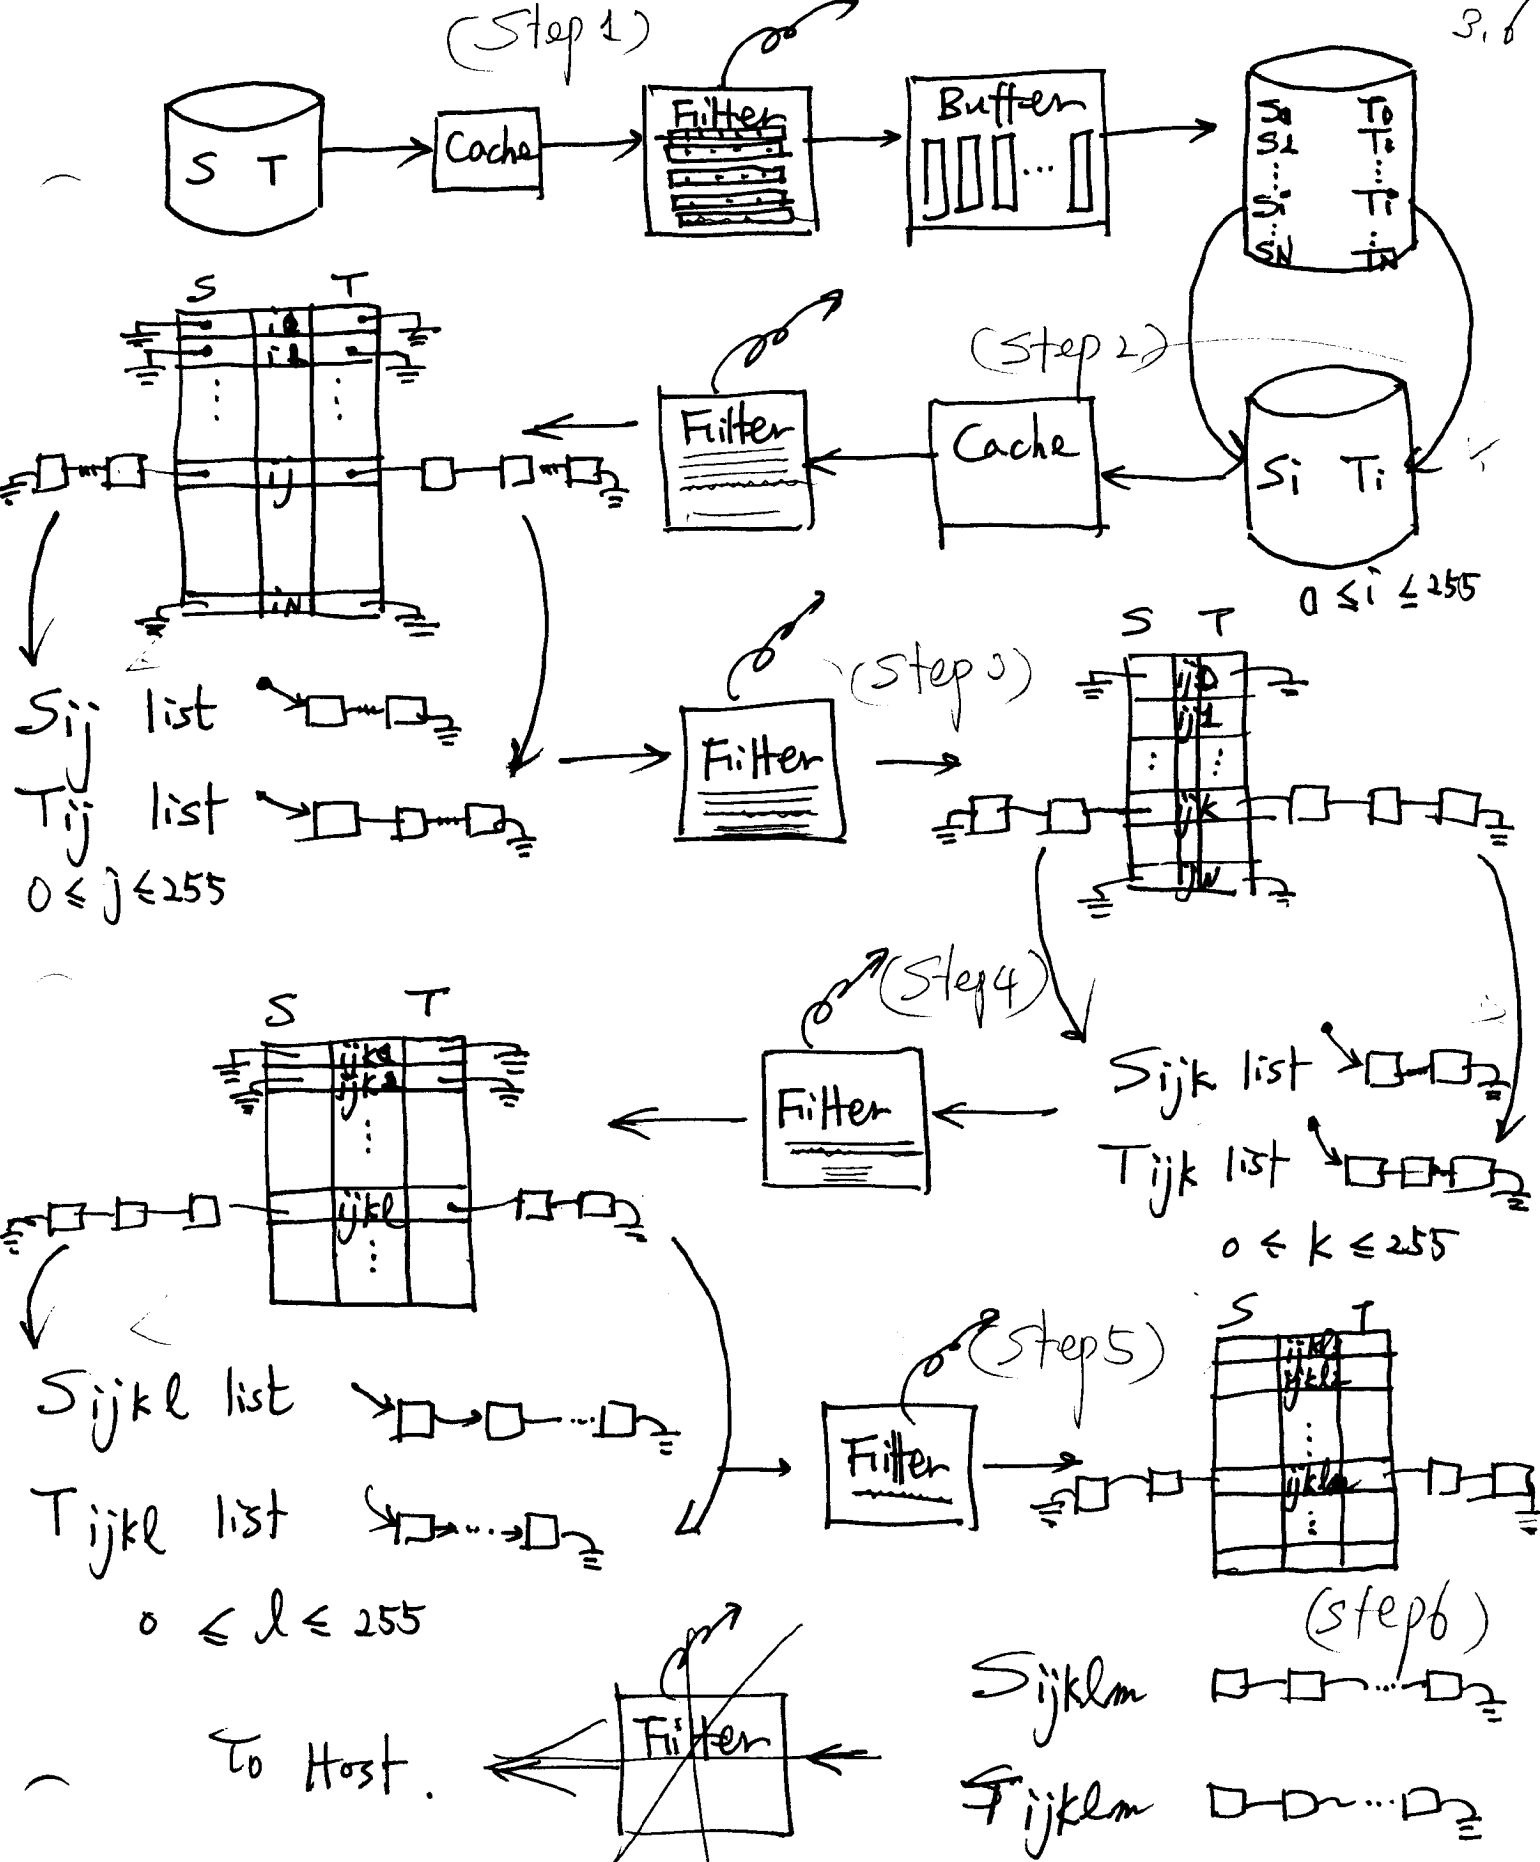 (Step 1)
3.6
S T
Cache
Filter
Buffer
...
S0 T0
S1 T1
Si Ti
SN TN
S T
i0
i1
ij
iN
Filter
(Step 2)
Cache
Si Ti
0 ≤ i ≤ 255
Sij list
Tij list
0 ≤ j ≤ 255
Filter
(Step 3)
S T
ij0
ij1
ijk
ijN
(Step 4)
S T
ijk0
ijk1
ijkl
Filter
Sijk list
Tijk list
0 ≤ k ≤ 255
Sijkl list
Tijkl list
0 ≤ l ≤ 255
Filter
(Step 5)
S T
ijklm
(Step 6)
Sijklm
Tijklm
Filter
To Host.